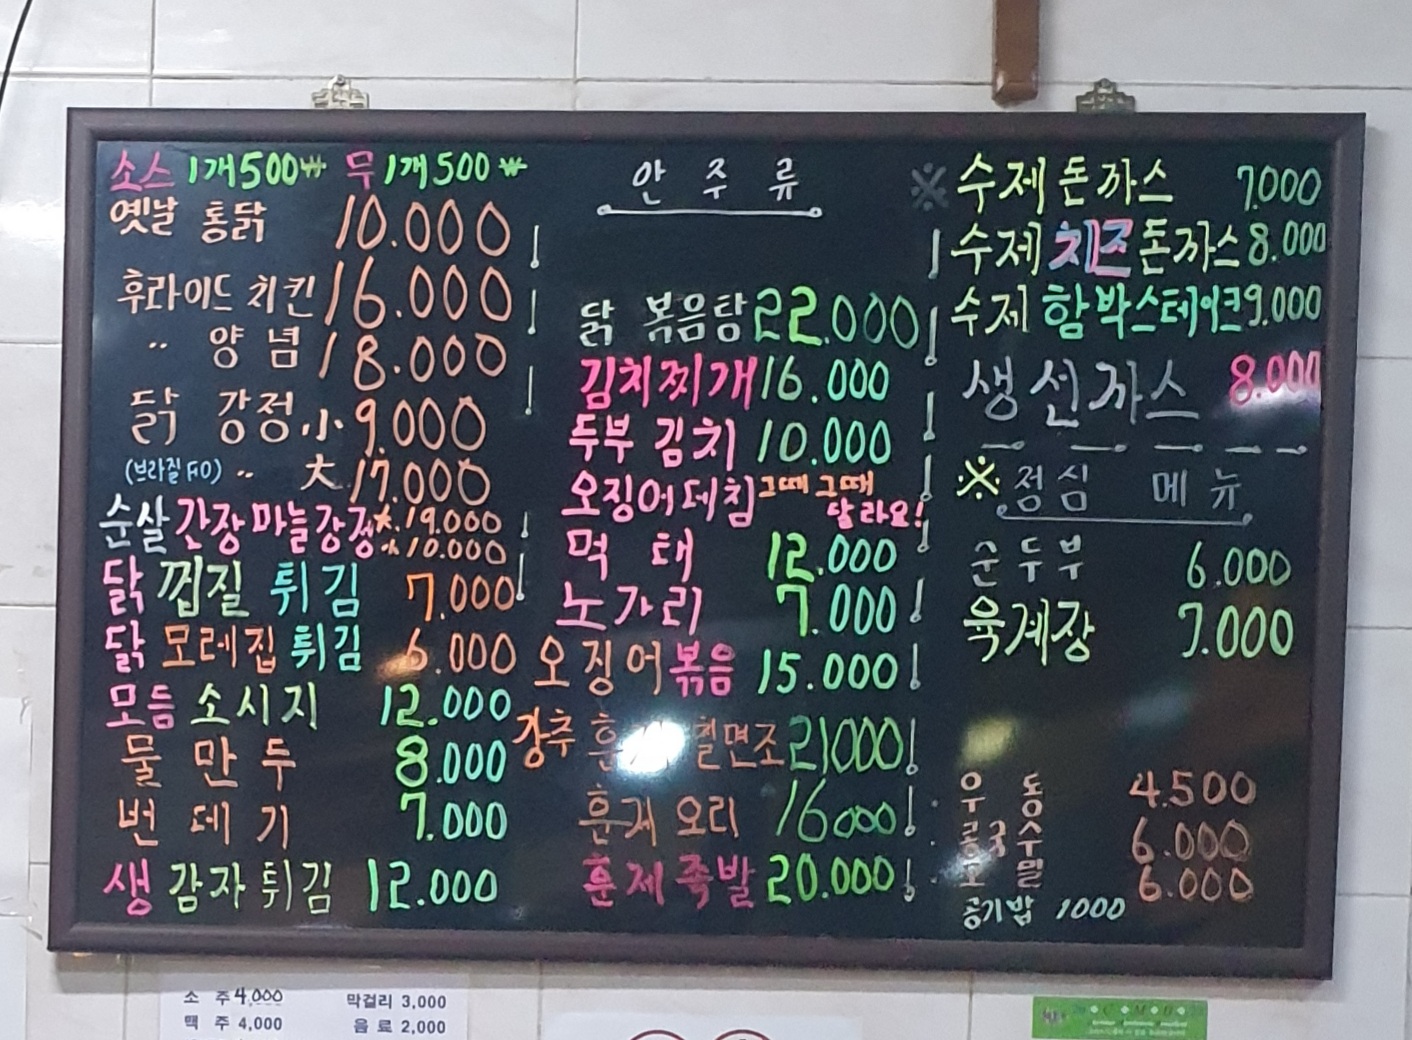 소스 1개500₩ 무 1개500₩
옛날 통닭 10.000
후라이드 치킨 16.000
〃 양념 18.000
닭 강정 小 9.000
(브라질FIO) 〃 大 17.000
순살간장마늘강정 大.19.000
小10.000
닭 껍질 튀김 7.000
닭 모레집튀김 6.000
모듬 소시지 12.000
물만두 8.000
번데기 7.000
생감자튀김 12.000
안주류
닭 볶음탕 22.000
김치찌개 16.000
두부 김치 10.000
오징어데침 그때그때
달라요!
먹태 12.000
노가리 7.000
오징어볶음 15.000
강추 훈 칠면조 21000
훈제 오리 16000
훈제족발 20.000
※ 수제돈까스 7.000
수제치즈돈까스 8.000
수제 함박스테이크 9.000
생선까스 8.000
※ 점심 메뉴
순두부 6.000
육계장 7.000
우동 4.500
콩국수 6.000
쫄면 6.000
공기밥 1000
소 주 4,000 막걸리 3,000
맥 주 4,000 음 료 2,000